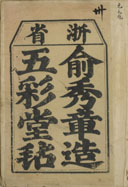 卅
浙省
俞秀童造
五彩堂毡